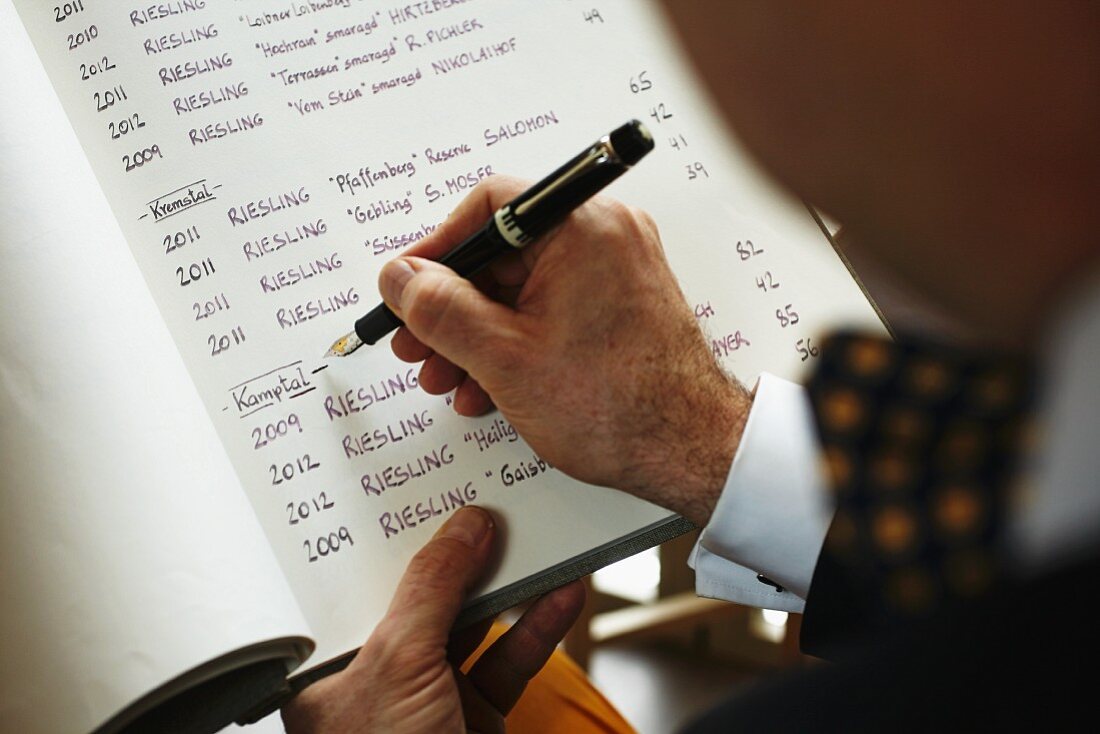 2011 RIESLING
2010 RIESLING "Loibner Loibenberg"
2012 RIESLING "Hochrain" smaragd HIRTZBERGER 49
2011 RIESLING "Terrassen" smaragd R. PICHLER
2012 RIESLING "Vom Stein" smaragd NIKOLAIHOF
2009 RIESLING
- Kremstal -
2011 RIESLING "Pfaffenberg" Reserve SALOMON 65
2011 RIESLING "Gebling" S. MOSER 42
2011 RIESLING "Süssenb 41
2011 RIESLING 39
- Kamptal -
2009 RIESLING " 82
2012 RIESLING "Heilig 42
2012 RIESLING "Gaisb CH 85
2009 RIESLING AYER 56